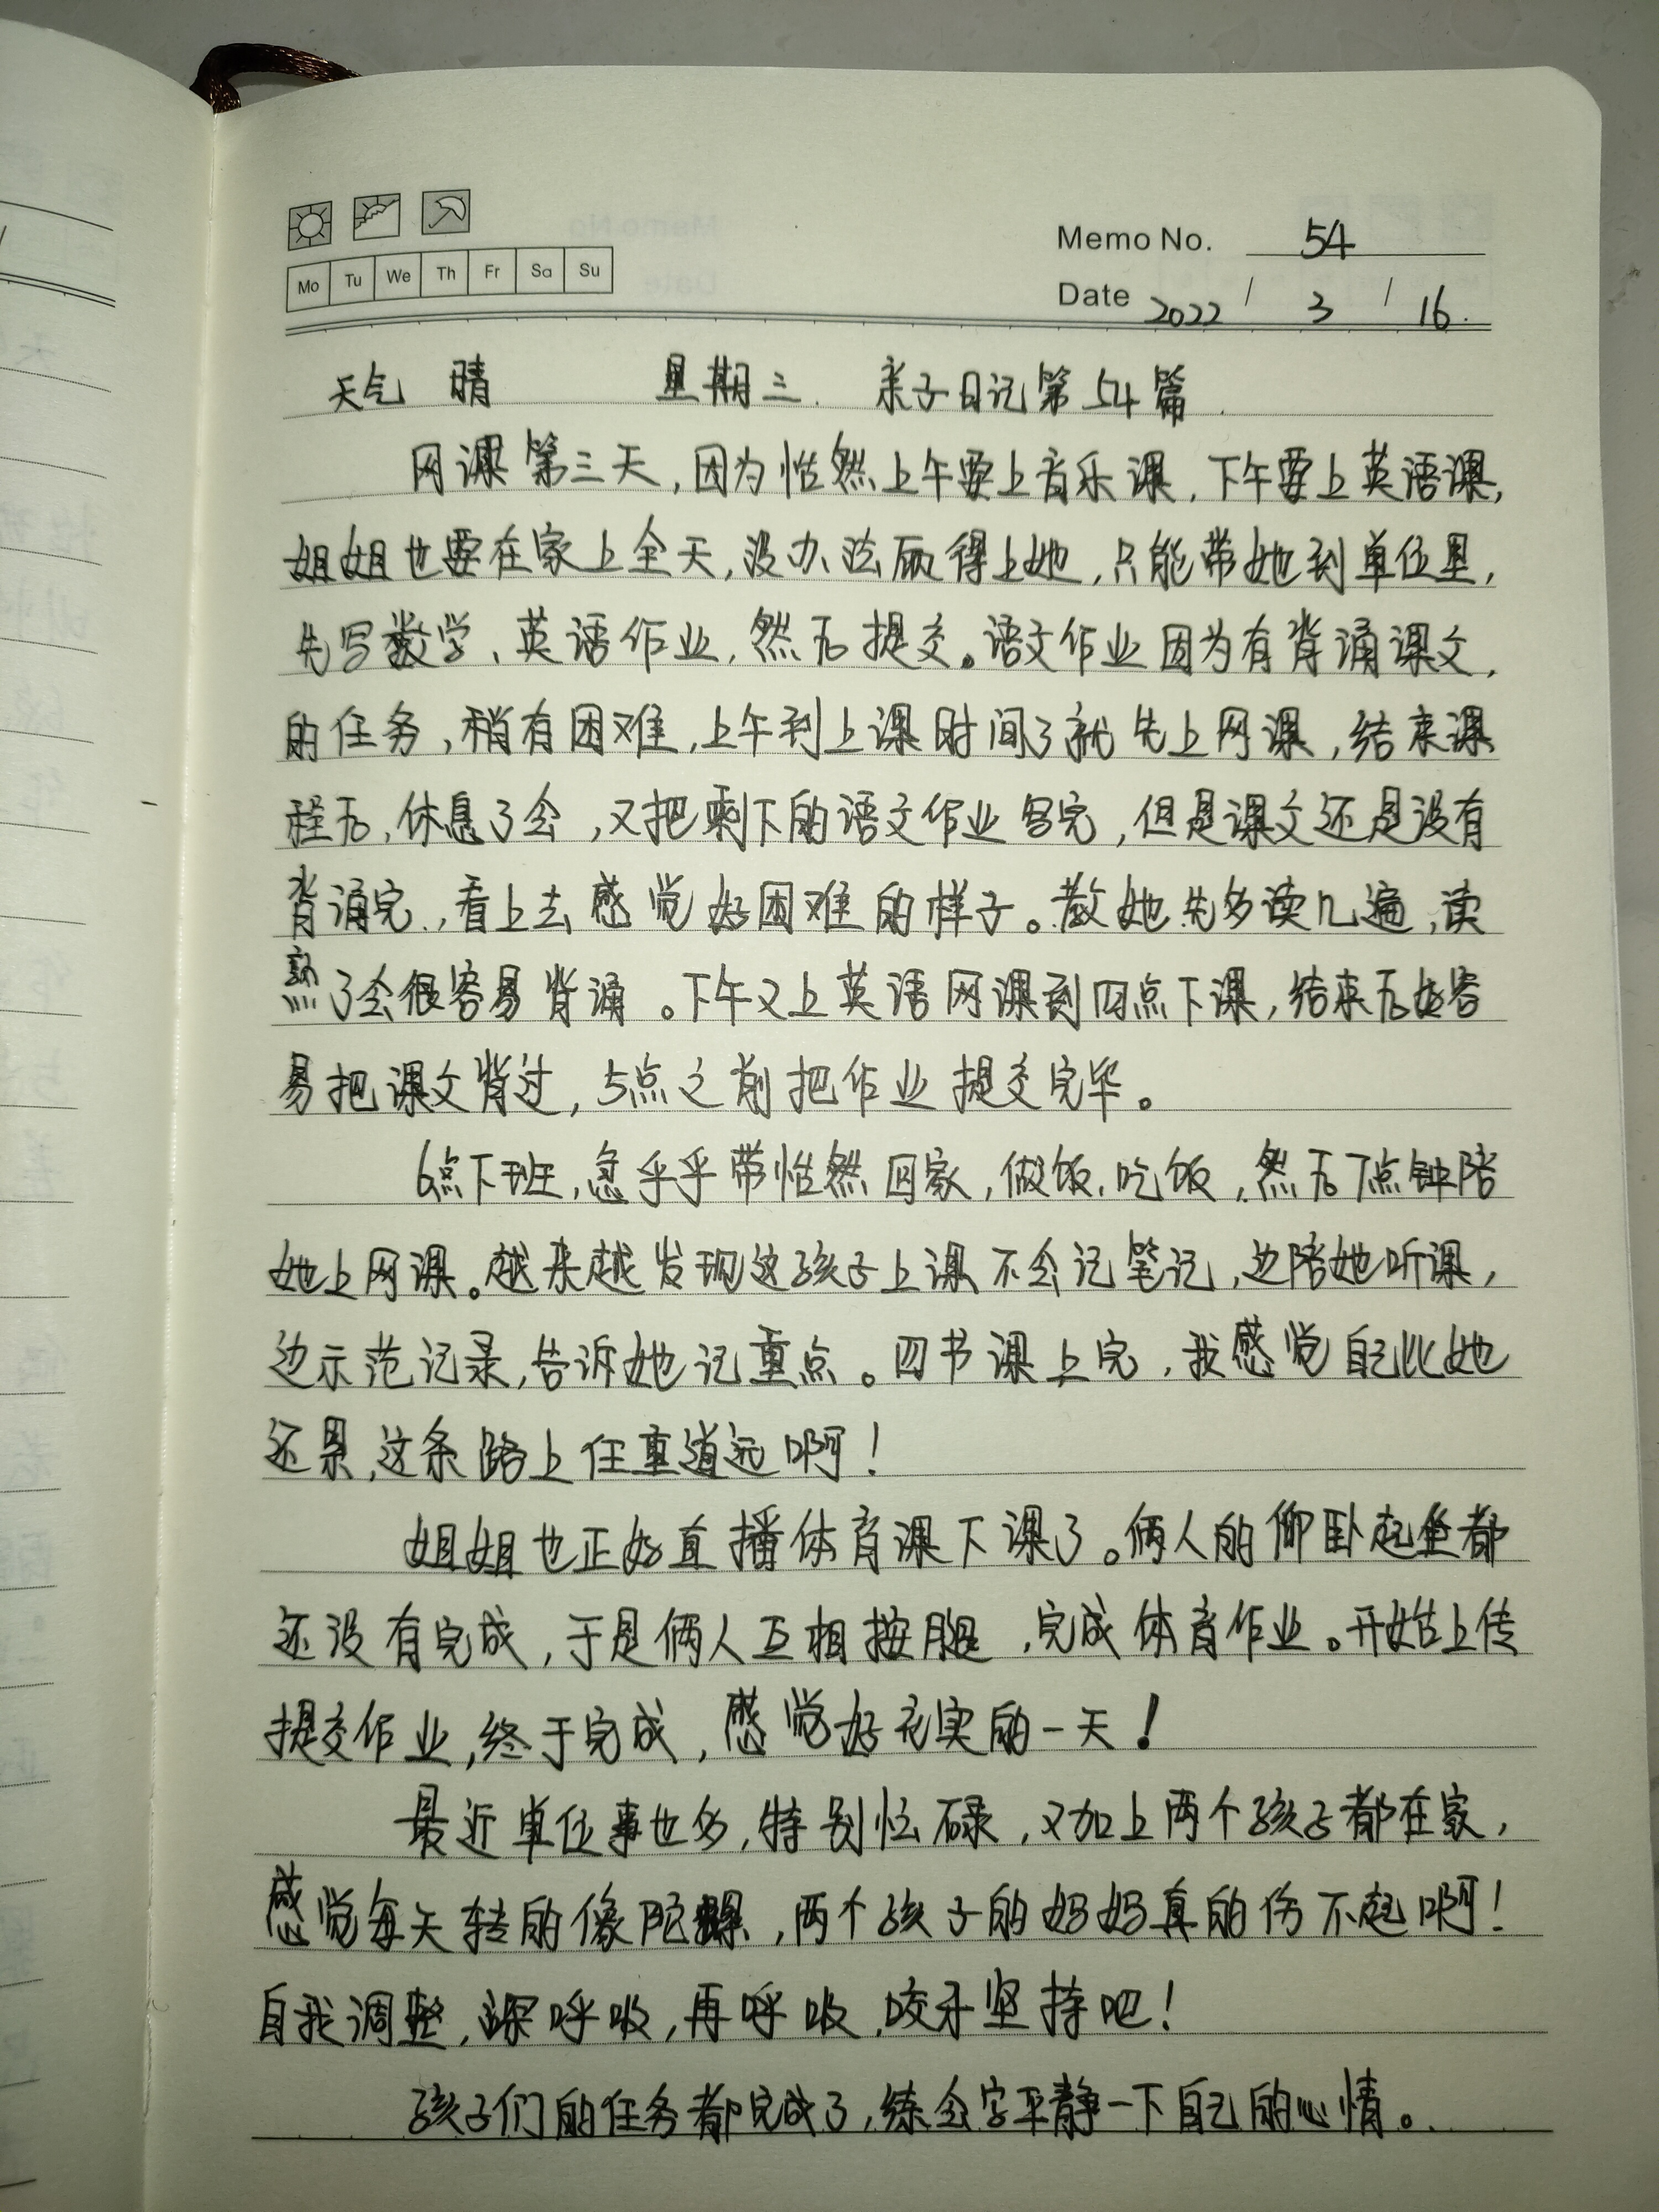 Memo No. 54
Mo Tu We Th Fr Sa Su
Date 2022 / 3 / 16.
天气 晴 星期三. 亲子日记第54篇.
网课第三天,因为怡然上午要上音乐课,下午要上英语课,
姐姐也要在家上全天,没办法顾得上她,只能带她到单位里,
先写数学、英语作业,然后提交。语文作业因为有背诵课文,
的任务,稍有困难,上午到上课时间了就先上网课,结束课
程后,休息了会,又把剩下的语文作业写完,但是课文还是没有
背诵完,看上去感觉好困难的样子。教她先多读几遍,读
熟了会很容易背诵。下午又上英语网课到四点下课,结束后好容
易把课文背过,5点之前把作业提交完毕。
6点下班,急乎乎带怡然回家,做饭,吃饭,然后7点钟陪
她上网课。越来越发现这孩子上课不会记笔记,边陪她听课,
边示范记录,告诉她记重点。四节课上完,我感觉自己比她
还累,这条路上任重道远啊!
姐姐也正好直播体育课下课了。俩人的仰卧起坐都
还没有完成,于是俩人互相按腿,完成体育作业。开始上传
提交作业,终于完成,感觉好充实的一天!
最近单位事也多,特别忙碌,又加上两个孩子都在家,
感觉每天转的像陀螺,两个孩子的妈妈真的伤不起啊!
自我调整,深呼吸,再呼吸,咬牙坚持吧!
孩子们的任务都完成了,练会字平静一下自己的心情。